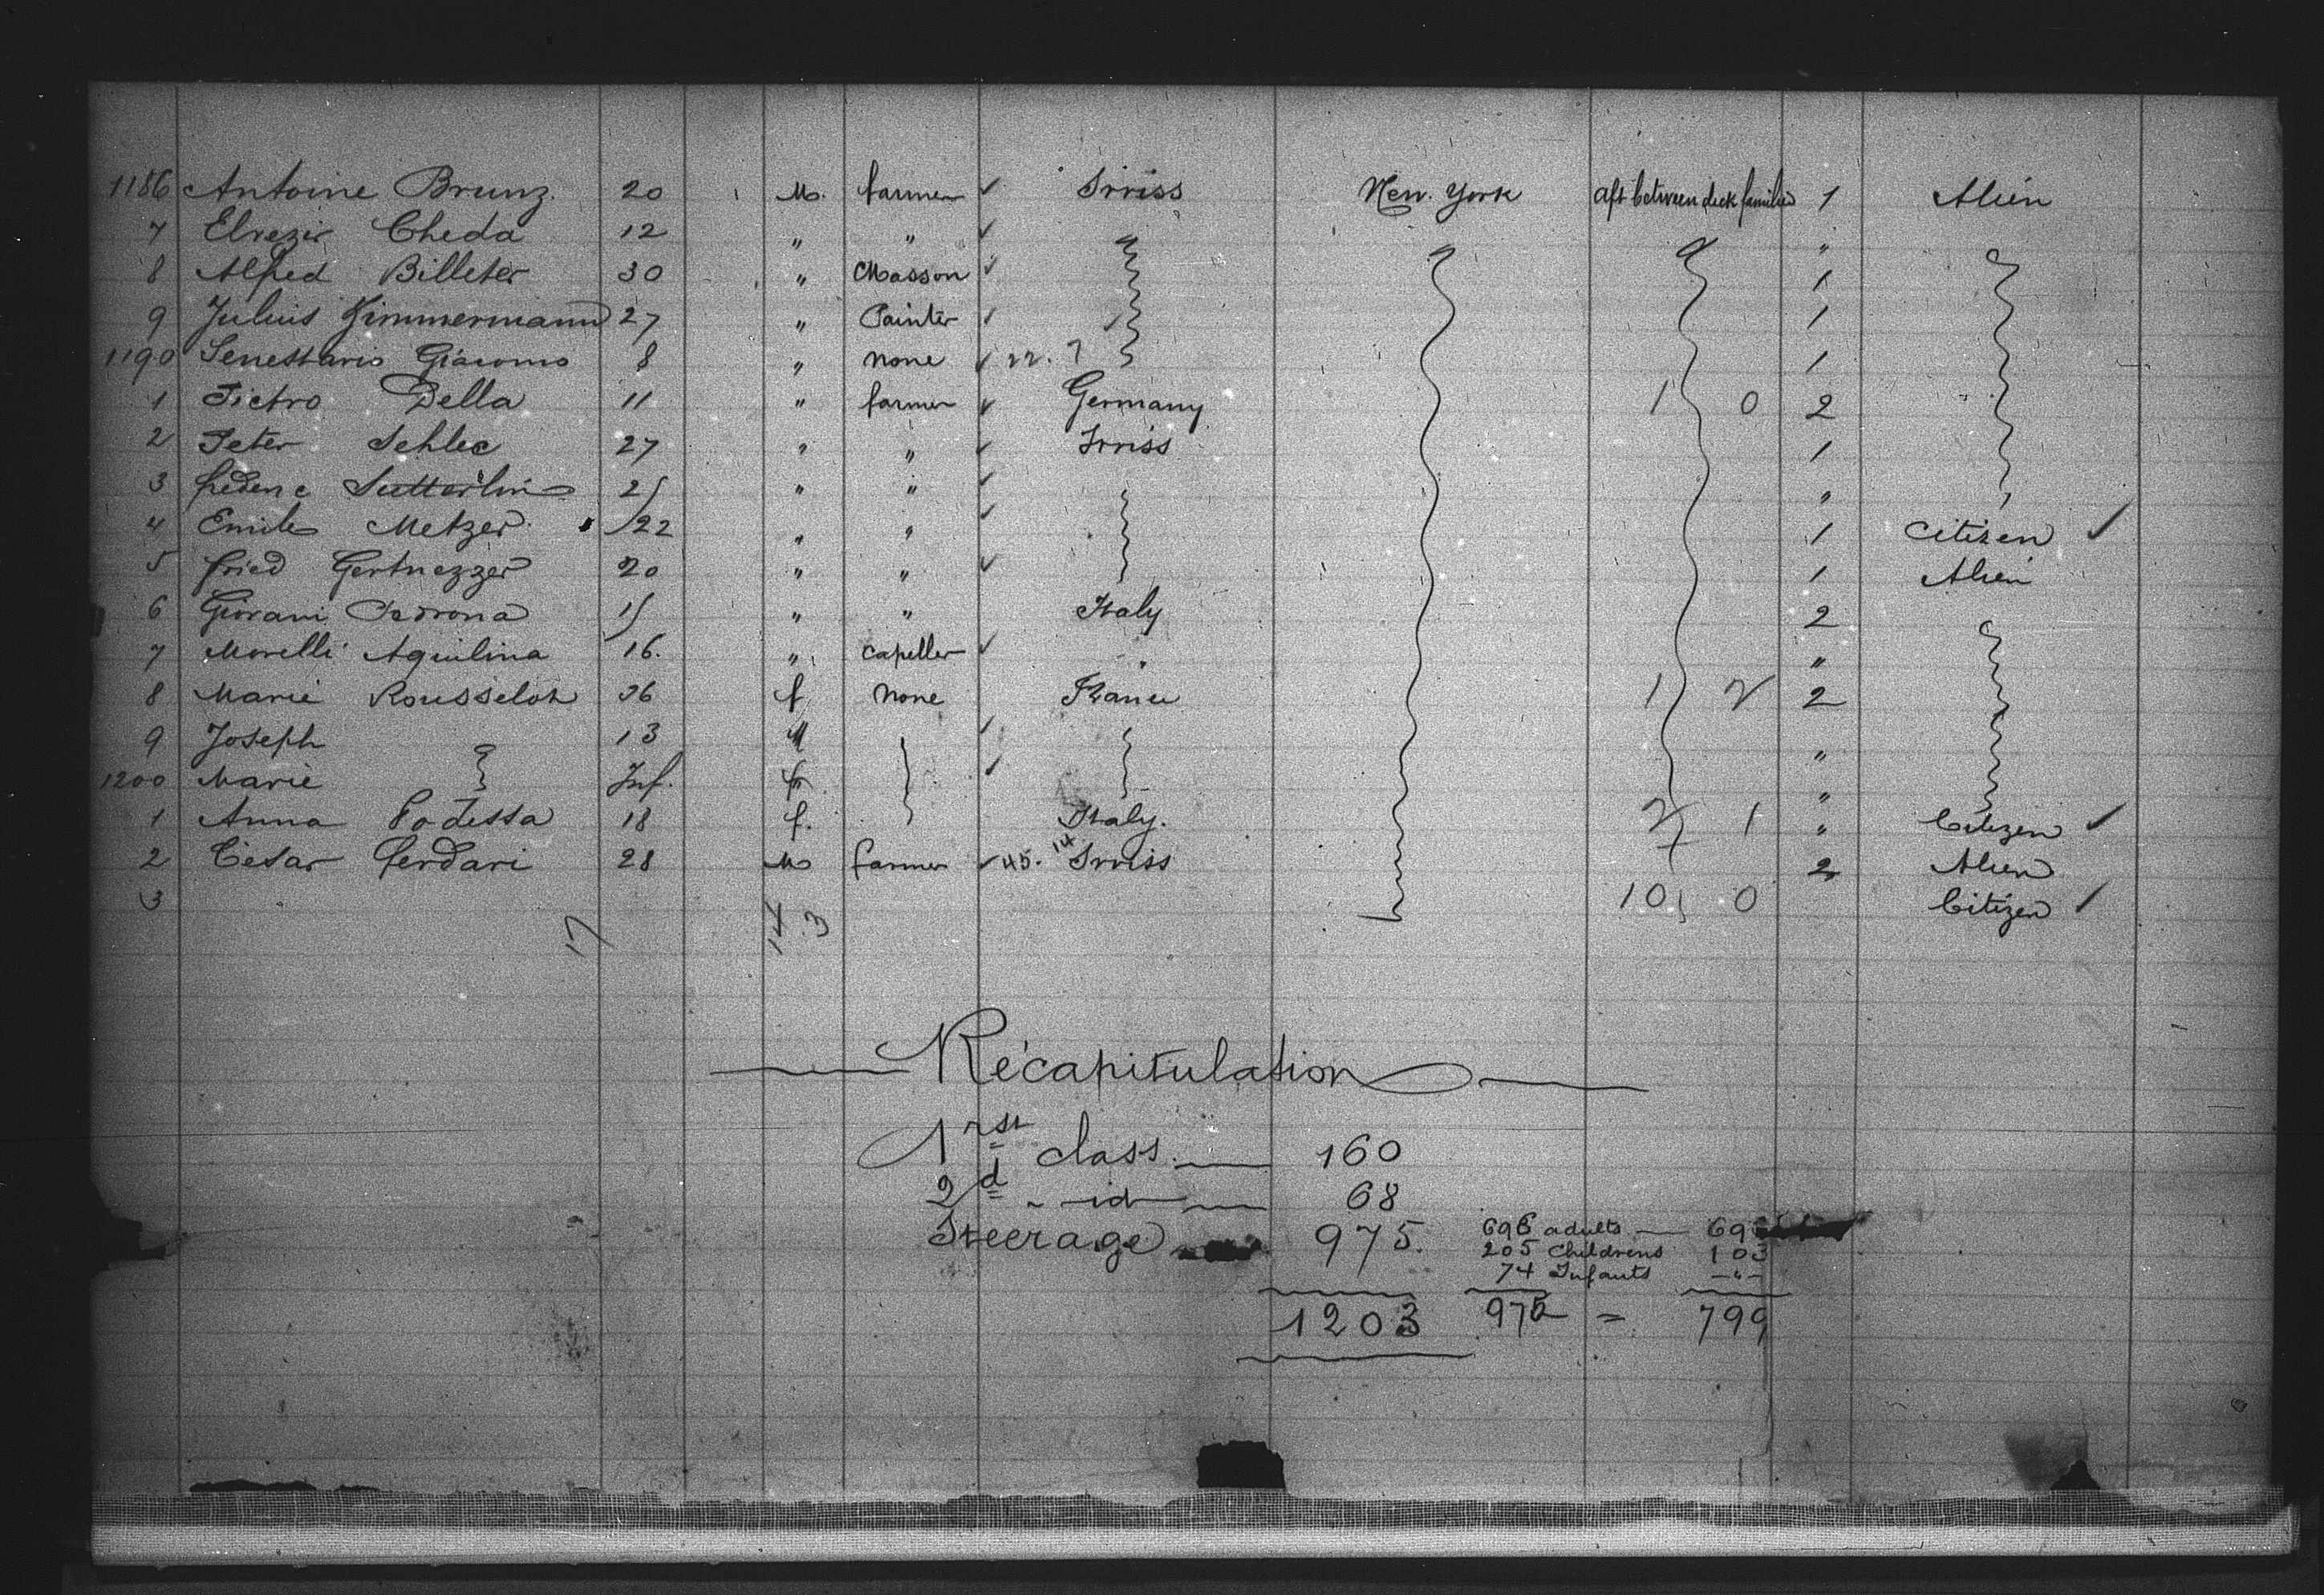 1186 Antoine Brunz. 20 M. farmer ✓ Swiss New. York aft between deck families 1 Alien
7 Elvezir Cheda 12 " " ✓ "
8 Alfred Billeter 30 " Masson ✓ 1
9 Julius Zimmermann 27 " Painter ✓ 1
1190 Giacomo 8 " none ✓ 22. 7 1
1 Pietro Della 11 " farmer ✓ Germany 1 0 2
2 Peter Schlec 27 " " ✓ Swiss 1
3 frederic Sutterlin " " ✓ "
4 Emile Metzer 22 " " ✓ 1 Citizen ✓
5 fried 20 " " ✓ 1 Alien
6 Giovani " " Italy 2
7 Morelli Aquilina 16. " Capeller ✓ " "
8 Marie Rousselot 36 f none France 1 2 2
9 Joseph 13 M ✓ "
1200 Marie Inf. f ✓ "
1 Anna Podesta 18 f. Italy. 2 1 " Citizen ✓
2 César ferdari 28 M farmer ✓ 45. 14 Swiss 2 Alien
3 10 0 Citizen ✓
17 14 3
Récapitulation
1rst class 160
2d " id 68
Steerage 975. 696 adults 69
205 Childrens 103
74 Infants - " -
1203 975 = 799